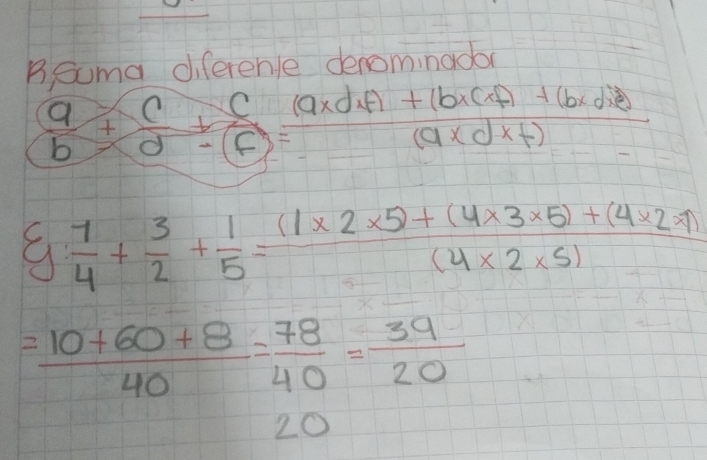 B, Suma diferente denominador
a/b + c/d + c/f = (a×d×f) + (b×c×f) + (b×d×e) / (a×d×f)
Ej: 1/4 + 3/2 + 1/5 = (1×2×5) + (4×3×5) + (4×2×1) / (4×2×5)
= 10+60+8 / 40 = 78/40 = 39/20
20